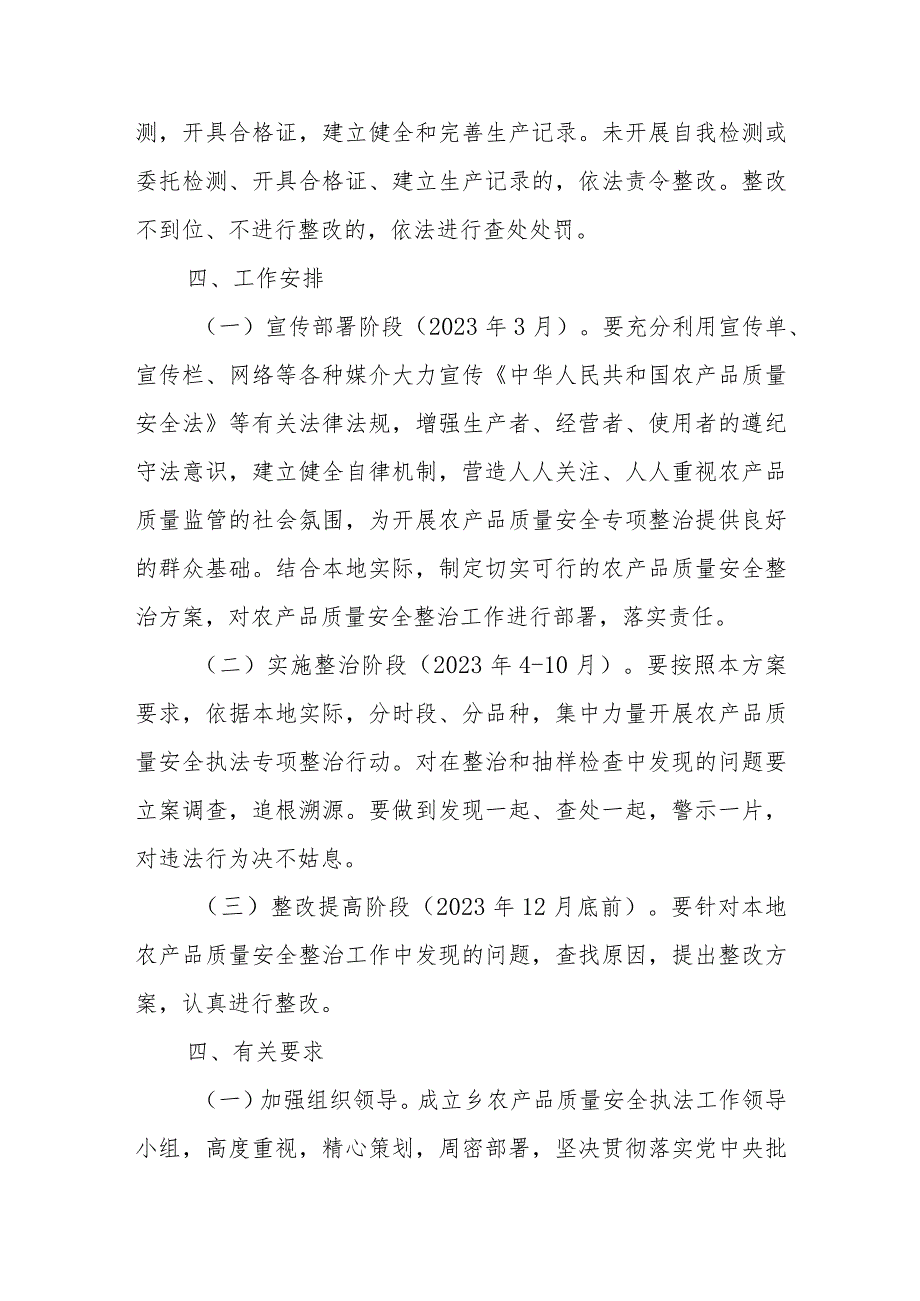 测，开具合格证，建立健全和完善生产记录。未开展自我检测或
委托检测、开具合格证、建立生产记录的，依法责令整改。整改
不到位、不进行整改的，依法进行查处处罚。
四、工作安排
（一）宣传部署阶段（2023 年 3 月）。要充分利用宣传单、
宣传栏、网络等各种媒介大力宣传《中华人民共和国农产品质量
安全法》等有关法律法规，增强生产者、经营者、使用者的遵纪
守法意识，建立健全自律机制，营造人人关注、人人重视农产品
质量监管的社会氛围，为开展农产品质量安全专项整治提供良好
的群众基础。结合本地实际，制定切实可行的农产品质量安全整
治方案，对农产品质量安全整治工作进行部署，落实责任。
（二）实施整治阶段（2023 年 4-10 月）。要按照本方案
要求，依据本地实际，分时段、分品种，集中力量开展农产品质
量安全执法专项整治行动。对在整治和抽样检查中发现的问题要
立案调查，追根溯源。要做到发现一起、查处一起，警示一片，
对违法行为决不姑息。
（三）整改提高阶段（2023 年 12 月底前）。要针对本地
农产品质量安全整治工作中发现的问题，查找原因，提出整改方
案，认真进行整改。
四、有关要求
（一）加强组织领导。成立乡农产品质量安全执法工作领导
小组，高度重视，精心策划，周密部署，坚决贯彻落实党中央批